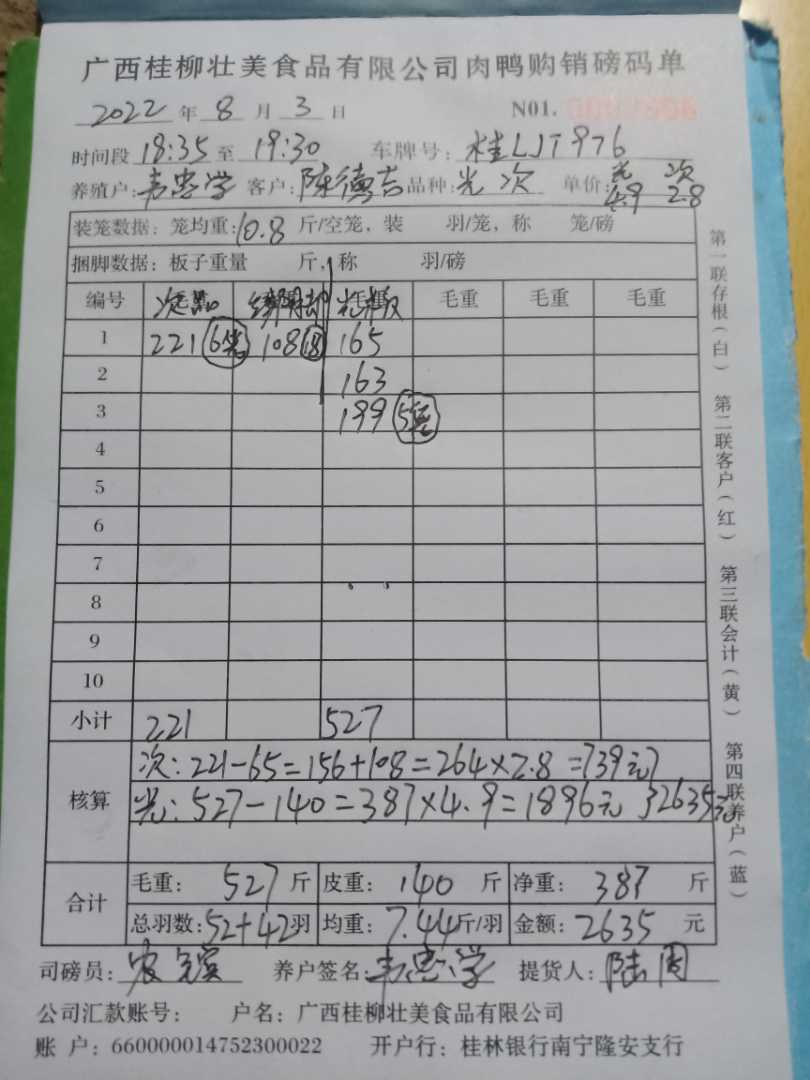 广西桂柳壮美食品有限公司肉鸭购销磅码单
2022 年 8 月 3 日 N01.
时间段 18:35 至 19:30 车牌号: 桂LJT976
养殖户: 韦忠学 客户: 陈德吉 品种: 光 次 单价: 光 4.9 次 2.8
装笼数据: 笼均重: 10.8 斤/空笼, 装 羽/笼, 称 笼/磅
捆脚数据: 板子重量 斤, 称 羽/磅
编号 毛重 毛重 毛重 毛重
1 221 108 18 165
2 163
3 199
4
5
6
7
8
9
10
小计 221 527
核算 次: 221-65=156+108=264×2.8=739元
光: 527-140=387×4.9=1896元 }2635元
合计 毛重: 527 斤 皮重: 140 斤 净重: 387 斤
总羽数: 52+42 羽 均重: 7.44 斤/羽 金额: 2635 元
司磅员: 养户签名: 韦忠学 提货人: 陆周
公司汇款账号: 户名: 广西桂柳壮美食品有限公司
账 户: 660000014752300022 开户行: 桂林银行南宁隆安支行
第一联存根(白) 第二联客户(红) 第三联会计(黄) 第四联养户(蓝)